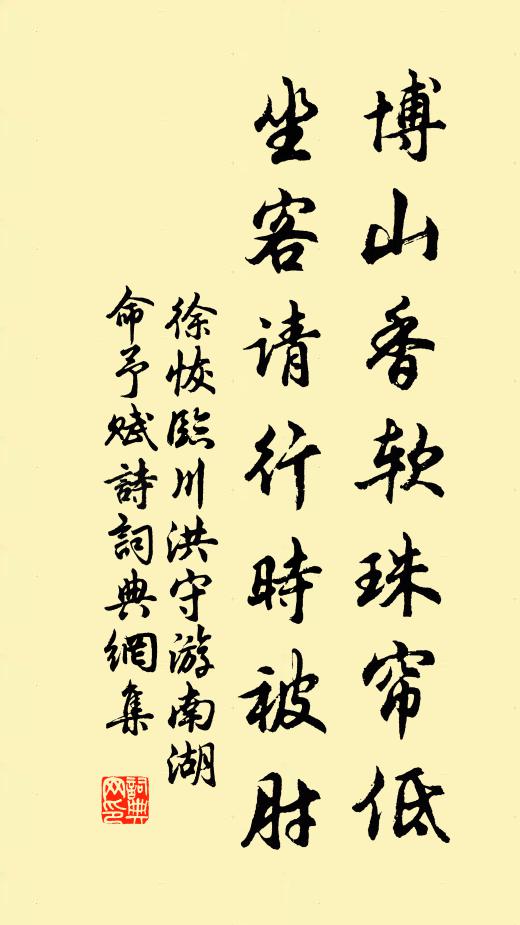 博山香软珠帘低
坐客请行時被肘
徐恢臨川洪守游南湖
命予賦詩詞典網集
詞典
网印